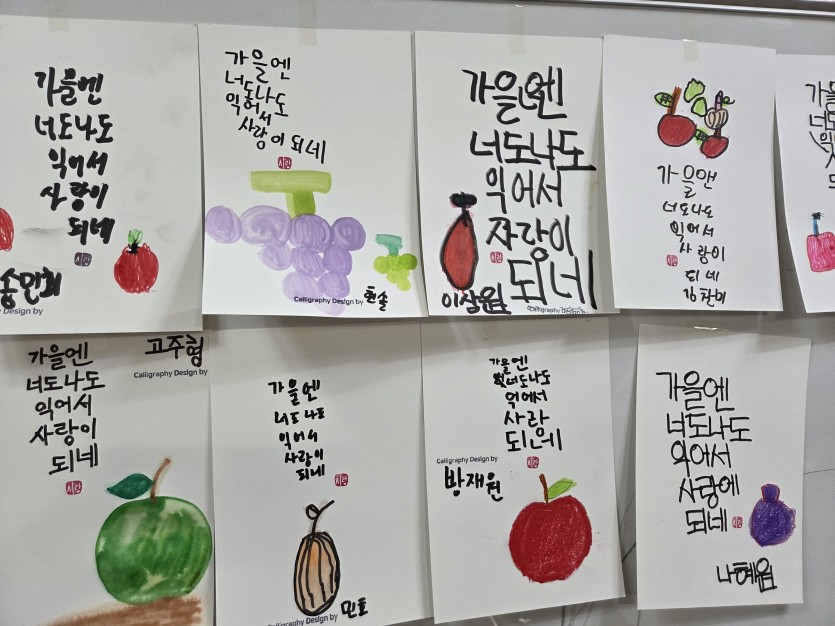 가을엔
너도나도
익어서
사랑이
되네
사랑
송민희
Design by
가을엔
너도나도
익어서
사랑이 되네
사랑
Calligraphy Design by
한솔
가을엔
너도나도
익어서
사랑이
되네
이삼원
Calligraphy Design by
가을앤
너도나도
익어서
사랑이
되네
사랑
김찬미
고주형
Calligraphy Design by
가을엔
너도나도
익어서
사랑이
되네
사랑
가을엔
너도나도
익어서
사랑이
되네
사랑
민호
Calligraphy Design by
가을엔
너도나도
익어서
사랑
되네
사랑
Calligraphy Design by
방재원
가을엔
너도나도
익어서
사랑에
되네
사랑
나혜원